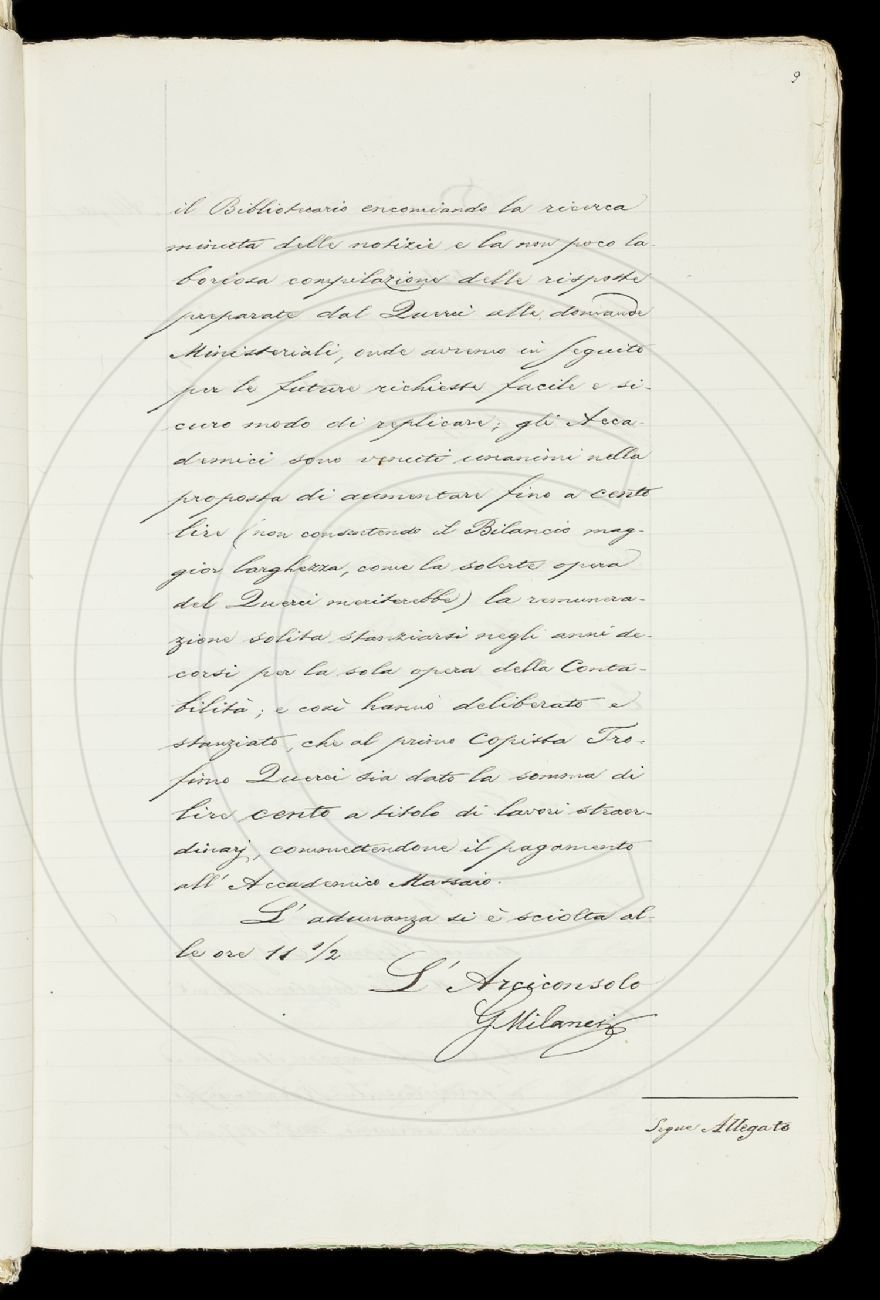 9
il Bibliotecario encomiando la ricerca
minuta delle notizie e la non poco la-
boriosa compilazione delle risposte
preparate dal Querci alle domande
Ministeriali, onde avremo in seguito
per le future richieste facile e si-
curo modo di replicare; gli Acca-
demici sono venuti unanimi nella
proposta di aumentare fino a cento
lire (non consentendo il Bilancio mag-
gior larghezza, come la solerte opera
del Querci meriterebbe) la remunera-
zione solita stanziarsi negli anni de-
corsi per la sola opera della Conta-
bilità; e così hanno deliberato e
stanziato, che al primo Copista Tro-
fimo Querci sia dato la somma di
lire cento a titolo di lavori straor-
dinarj, commettendone il pagamento
all' Accademico Massaio.
L' adunanza si è sciolta al-
le ore 11 1/2
L' Arciconsolo
G Milanesi
Segue Allegato